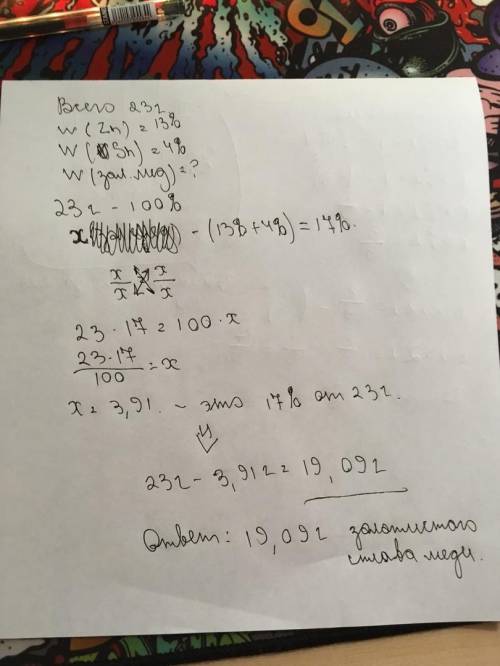 Всего 23г
W(Zn) = 13%
W(Sn) = 4%
W(зол. мед) = ?
23г - 100%
x - (13% + 4%) = 17%.
x/x x/x
23 · 17 = 100 · x
23 · 17 / 100 = x
x = 3,91. - это 17% от 23г.
23г - 3,91г = 19,09г
Ответ: 19,09г золотистого
сплава меди.